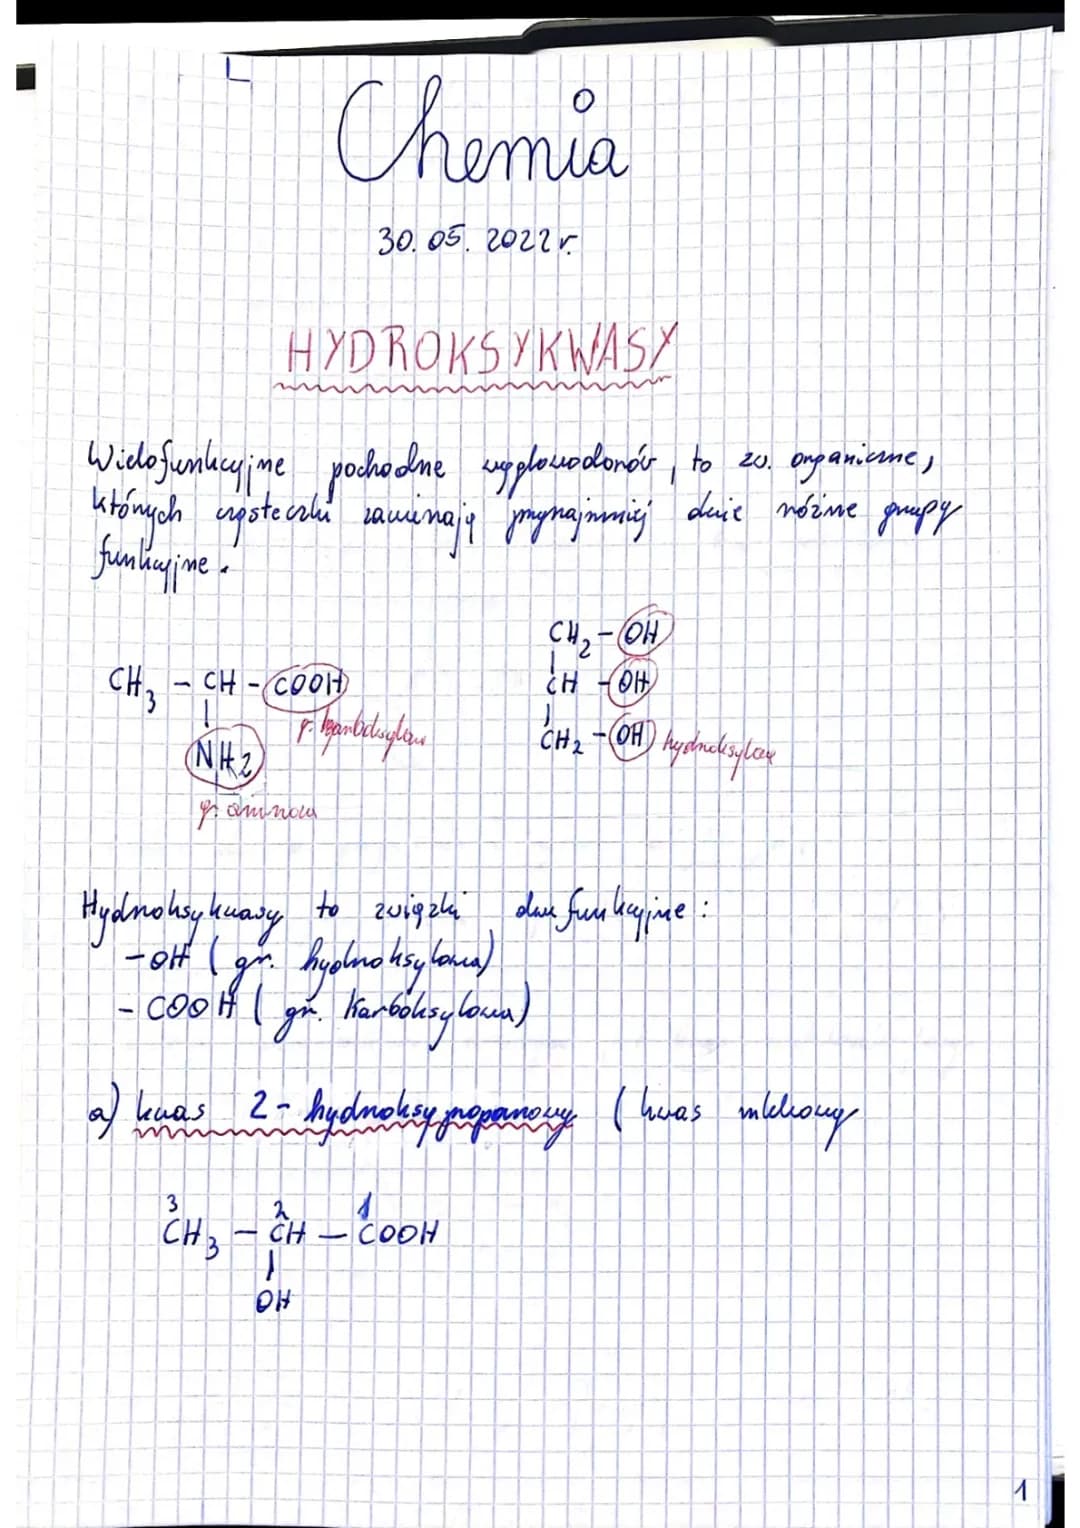 Chemia
30.05.2022r.
HYDROKSYKWASY
Wielofunkcyjne pochodne węglowodorów, to zw. organiczne,
których cząsteczki zawierają przynajmniej dwie różne grupy
funkcyjne.
CH₃ - CH - COOH
|
NH2
gr. karboksylowa
gr. aminowa
CH₂ - OH
|
CH - OH
|
CH₂ - OH hydroksylowa
Hydroksykwasy to związki dwufunkcyjne:
- OH (gr. hydroksylowa)
- COOH (gr. karboksylowa)
a) kwas 2-hydroksypropanowy (kwas mlekowy
3 2 1
CH₃ - CH - COOH
|
OH
1